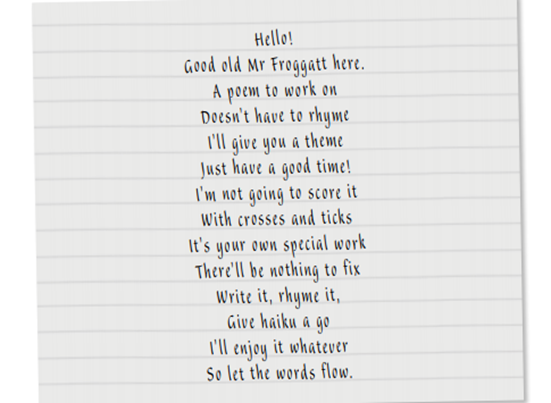 Hello!
Good old Mr Froggatt here.
A poem to work on
Doesn't have to rhyme
I'll give you a theme
Just have a good time!
I'm not going to score it
With crosses and ticks
It's your own special work
There'll be nothing to fix
Write it, rhyme it,
Give haiku a go
I'll enjoy it whatever
So let the words flow.